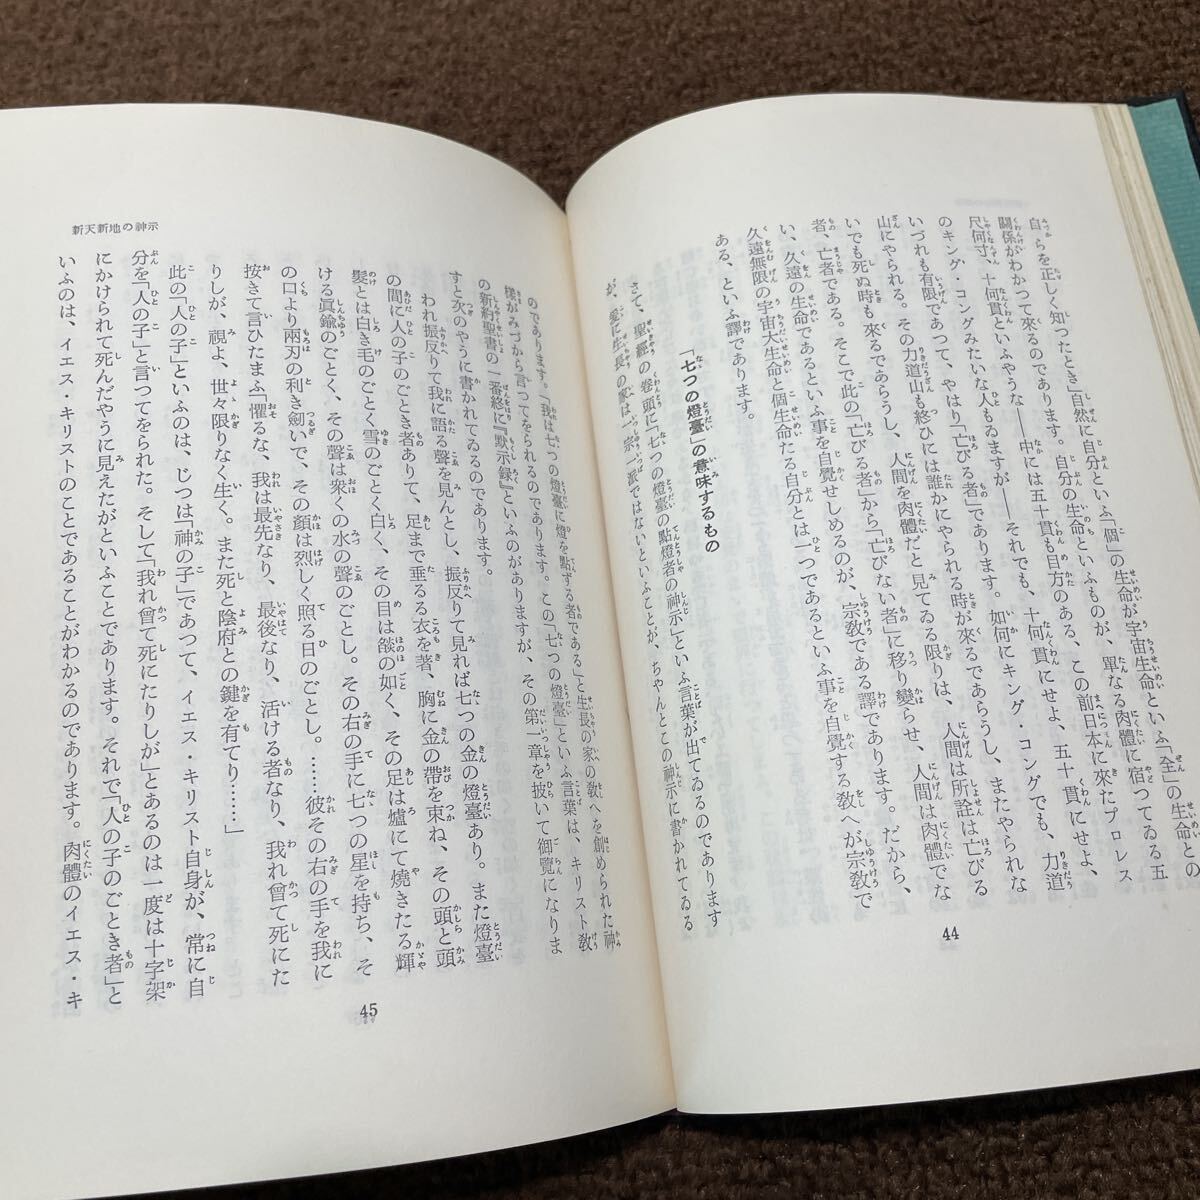 自らを正しく知つたとき自然に自分といふ「個」の生命が宇宙生命といふ「全」の生命との
關係がわかつて來るのであります。自分の生命といふものが、單なる肉體に宿つてゐる五
尺何寸、十何貫といふやうな――中には五十貫も目方のある、この前日本に來たプロレス
のキング・コングみたいな人もゐますが――それでも、十何貫にせよ、五十貫にせよ、
いづれも有限であつて、やはり「亡びる者」であります。如何にキング・コングでも、力道
山にやられる。その力道山も終ひには誰かにやられる時が來るであらうし、またやられな
いでも死ぬ時も來るであらうし、人間を肉體だと見てゐる限りは、人間は所詮は亡びる
者、亡者である。そこで此の「亡びる者」から「亡びない者」に移り變らせ、人間は肉體でな
い、久遠の生命であるといふ事を自覺せしめるのが、宗教である譯であります。だから、
久遠無限の宇宙大生命と個生命たる自分とは一つであるといふ事を自覺する敎へが宗敎で
ある、といふ譯であります。
「七つの燈臺」の意味するもの
さて、聖經の卷頭に「七つの燈臺の點燈者の神示」といふ言葉が出てゐるのであります
が、爰に生長の家は一宗一派ではないといふことが、ちゃんとこの神示に書かれてゐる
44
のであります。「我は七つの燈臺に燈を點ずる者である」と生長の家の敎へを創められた神
樣がみづから言つてをられるのであります。この「七つの燈臺」といふ言葉は、キリスト敎
の新約聖書の一番終に『默示錄』といふのがありますが、その第一章を披いて御覽になりま
すと次のやうに書かれてゐるのであります。
われ振反りて我に語る聲を見んとし、振反りて見れば七つの金の燈臺あり。また燈臺
の間に人の子のごとき者ありて、足まで垂るる衣を著、胸に金の帶を束ね、その頭と頭
髮とは白き毛のごとく雪のごとく白く、その目は焰の如く、その足は爐にて燒きたる輝
ける眞鍮のごとく、その聲は衆くの水の聲のごとし。その右の手に七つの星を持ち、そ
の口より兩刃の利き劍いで、その顏は烈しく照る日のごとし。……彼その右の手を我に
按きて言ひたまふ「懼るな、我は最先なり、最後なり、活ける者なり、われ曾て死にた
りしが、視よ、世々限りなく生く。また死と陰府との鍵を有てり……」
此の「人の子」といふのは、じつは「神の子」であつて、イエス・キリスト自身が、常に自
分を「人の子」と言つてをられた。そして「われ曾て死にたりしが」とあるのは一度は十字架
にかけられて死んだやうに見えたがといふことであります。それで「人の子のごとき者」と
いふのは、イエス・キリストのことであることがわかるのであります。肉體のイエス・キ
新天新地の神示
45